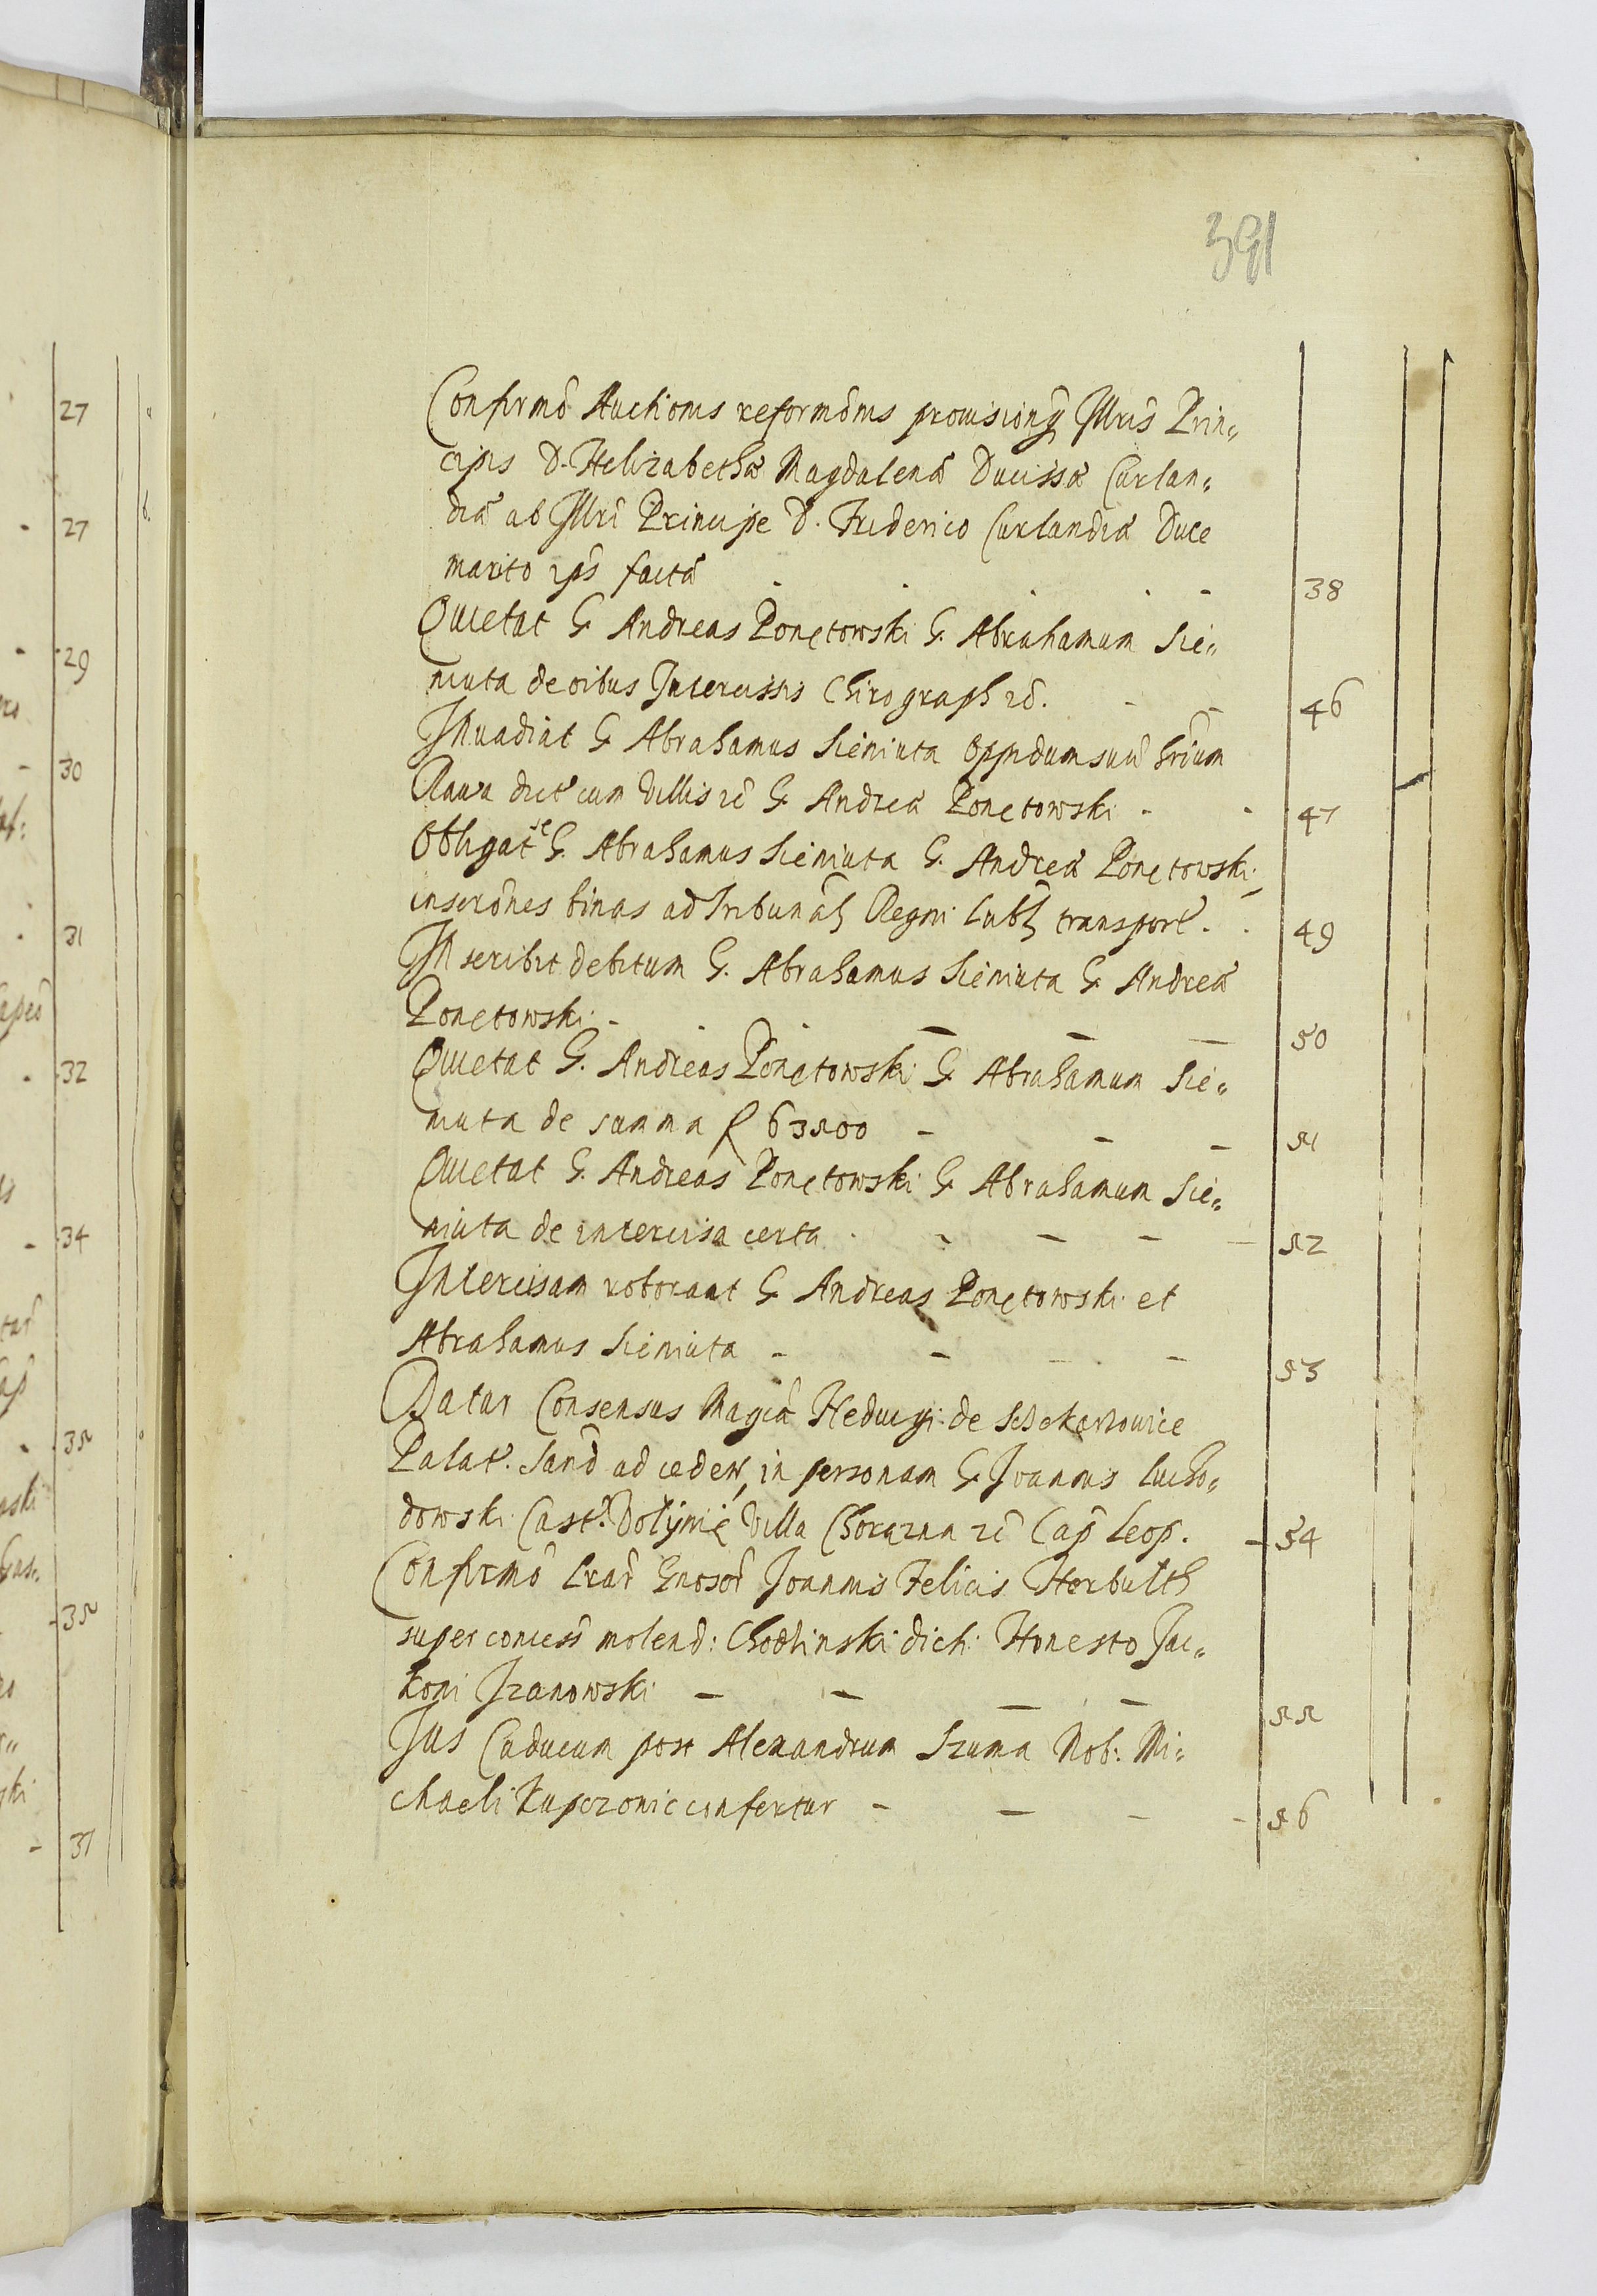 391
Confirmô Auctionis reformônis prouisionq Jllris Prin„
cipis D. Helizabethæ Magdalenæ Ducissæ Curlan„
diæ ab Jllri Principe D. Friderico Curlandiæ Duce
marito ips factæ 38
Quietat G. Andreas Ponętowski G. Abrahamum Sie„
niuta de oibus Intercissis Chirograph 46
Jnuadiat G. Abrahamus Sieniuta oppidum suũ
Raua dict cum Villis G. Andreæ Ponętowski 47
Obligat se G. Abrahamus Sieniuta G. Andreæ Ponętowski
inscriõnes binas ad Tribunal Regni Lubl transport. 49
Jnscribit debitum G. Abrahamus Sieniuta G. Andreæ
Ponętowski 50
Quietat G. Andreas Ponętowski G. Abrahamum Sie„
niuta de summa 63500 51
Quietat G. Andreas Ponętowski G. Abrahamum Sie„
niuta de intercisa certa 52
Jntercisam roborant G. Andreas Ponętowski et
Abrahamus Sieniuta 53
Datur Consensus Hedwigi de
Palat. Sand ad ceden, in personam G. Joannis Lucho„
dowski Cast. Volÿnię Villa Chorązna Cap Leop. 54
Confirmô Joannis Felicis Herbulth
super concess molend: Chodlinski dicti Honesto Jac„
kopi Jzanowski 55
Jus Caducum post Alexandrum Szuma Nob: Mi„
chaeli Kupczonic confertur 56
27
27
29
30
31
32
34
35
35
37